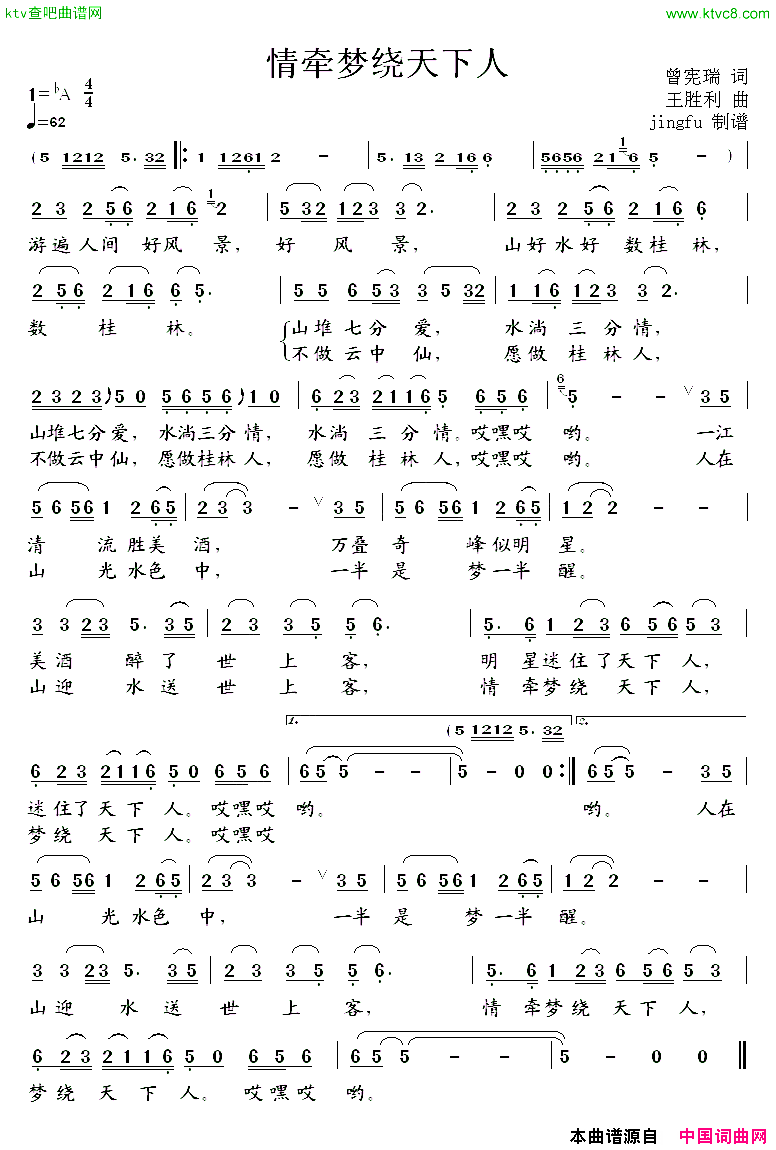 ktv查吧曲谱网 www.ktvc8.com
情牵梦绕天下人
1=♭A 4/4
♩=62
曾宪瑞 词
王胜利 曲
jingfu 制谱
(5 1212 5· 32 ‖: 1 1261 2 - | 5· 13 2 16 6 | 5656 21 1 6 5 - ) |
2 3 2 56 2 16 1 2 | 5 32 123 3 2· | 2 3 2 56 2 16 6 |
游遍人间 好风 景, 好 风 景, 山好水好 数桂 林,
2 56 2 16 6 5· | 5 5 6 53 3 5 32 | 1 16 123 3 2· |
数 桂 林。 山堆七分 爱, 水淌 三 分情,
不做云中 仙, 愿做 桂 林人,
2 3 2 3 5 0 5 6 5 6 1 0 | 6 23 2116 5 6 5 6 | 6 5 - - ∨ 3 5 |
山堆七分爱, 水淌三分情, 水淌 三 分 情。哎嘿哎 哟。 一江
不做云中仙, 愿做桂林人, 愿做 桂 林 人,哎嘿哎 哟。 人在
5 6 56 1 2 65 | 2 3 3 - ∨ 3 5 | 5 6 56 1 2 65 | 1 2 2 - - |
清 流胜美 酒, 万叠 奇 峰似明 星。
山 光水色 中, 一半 是 梦一半 醒。
3 3 23 5· 35 | 2 3 3 5 5 6· | 5· 6 1 23 6 56 5 3 |
美酒 醉了 世 上 客, 明 星迷住了天下 人,
山迎 水送 世 上 客, 情 牵梦绕 天下 人,
1. (5 1212 5· 32 2.
6 23 2116 5 0 6 5 6 | 6 5 5 - - | 5 - 0 0 :‖ 6 5 5 - - 3 5 |
迷住了天 下 人。哎嘿哎 哟。 哟。 人在
梦绕 天 下 人。哎嘿哎
5 6 56 1 2 65 | 2 3 3 - ∨ 3 5 | 5 6 56 1 2 65 | 1 2 2 - - |
山 光水色 中, 一半 是 梦一半 醒。
3 3 23 5· 35 | 2 3 3 5 5 6· | 5· 6 1 23 6 56 5 3 |
山迎 水送 世 上 客, 情 牵梦绕 天下 人,
6 23 2116 5 0 6 5 6 | 6 5 5 - - | 5 - 0 0 ‖
梦绕 天 下 人。哎嘿哎 哟。
本曲谱源自 中国词曲网